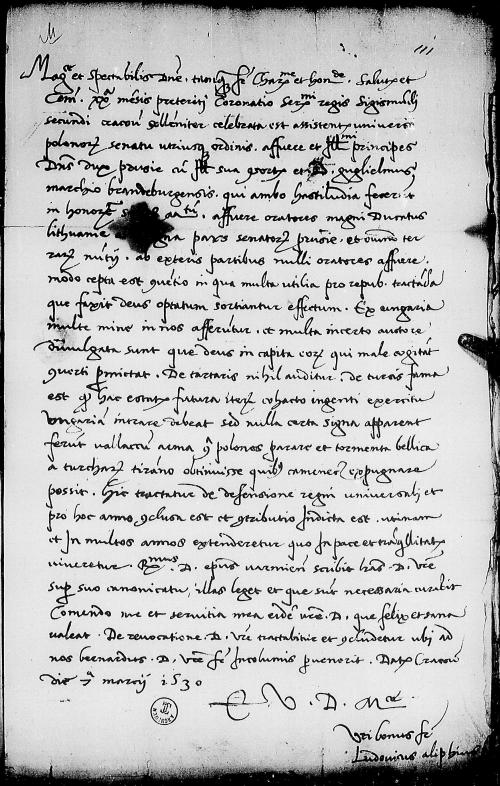 iii
Mag.ce et spectabilis Dne, tanq̃ fr Char.me et hon.de. Salutẽ et
Com. xx.a mẽsis preteriti Coronatio Ser.mi regis Sigismũdi
secundi cracoũ solleniter celebrata est assistente universo
polonorũ senatu utriusq ordinis. affuere et Ill.mi principes
Dns dux prusie cũ Ill. sua et guglielmus
marchio brandeburgensis. qui ambo hastiludia fecerũt
in honorẽ affuere oratores magni Ducatus
lithuanie pars senatorũ prusie. et omniũ ter
rarũ nũtij. ab exteris partibus nulli oratores affuere.
modo cepta est in qua multa utilia pro repub. tractãda
que faxit deus optatum sortiantur effectum. Ex ungaria
multe mine in nos afferũtur. et multa incerto auctore
divulgata sunt que deus in capita eorũ qui male cogitãt
9verti p̃mictat. De tartaris nihil auditur. de turcis fama
est hac estate futura cohacto ingenti exercitu
ungariã intrare debeat sed nulla certa signa apparent
ferũt vallaccũ arma 9 polonos parare et tormenta bellica
a turcharũ tirãno obtinuisse quibus camenez expugnare
possit. Hic tractatur de defensione regni universali et
pro hoc anno 9clusa est et 9tributio Indicta est. utinam
et In multos annos extenderetur quo In pace et trãq̃llitate
viveretur. R.mus D. epũs varmieñ scribit D. Vre
suꝑ suo canonicatu, illas leget et que sũt necessaria curabit
Comendo me et servitia mea eidẽ vre. D. que felix et sana
valeat. De revocatione. D. Vre tractabitur et 9cludetur ubi ad
nos bernardus. D. Vre fr Incolumis pervenerit. Datẽ Cracoũ
die marcij 1530
E V. D. M.ce
Uti bonus fr
Ludovicus aliphius